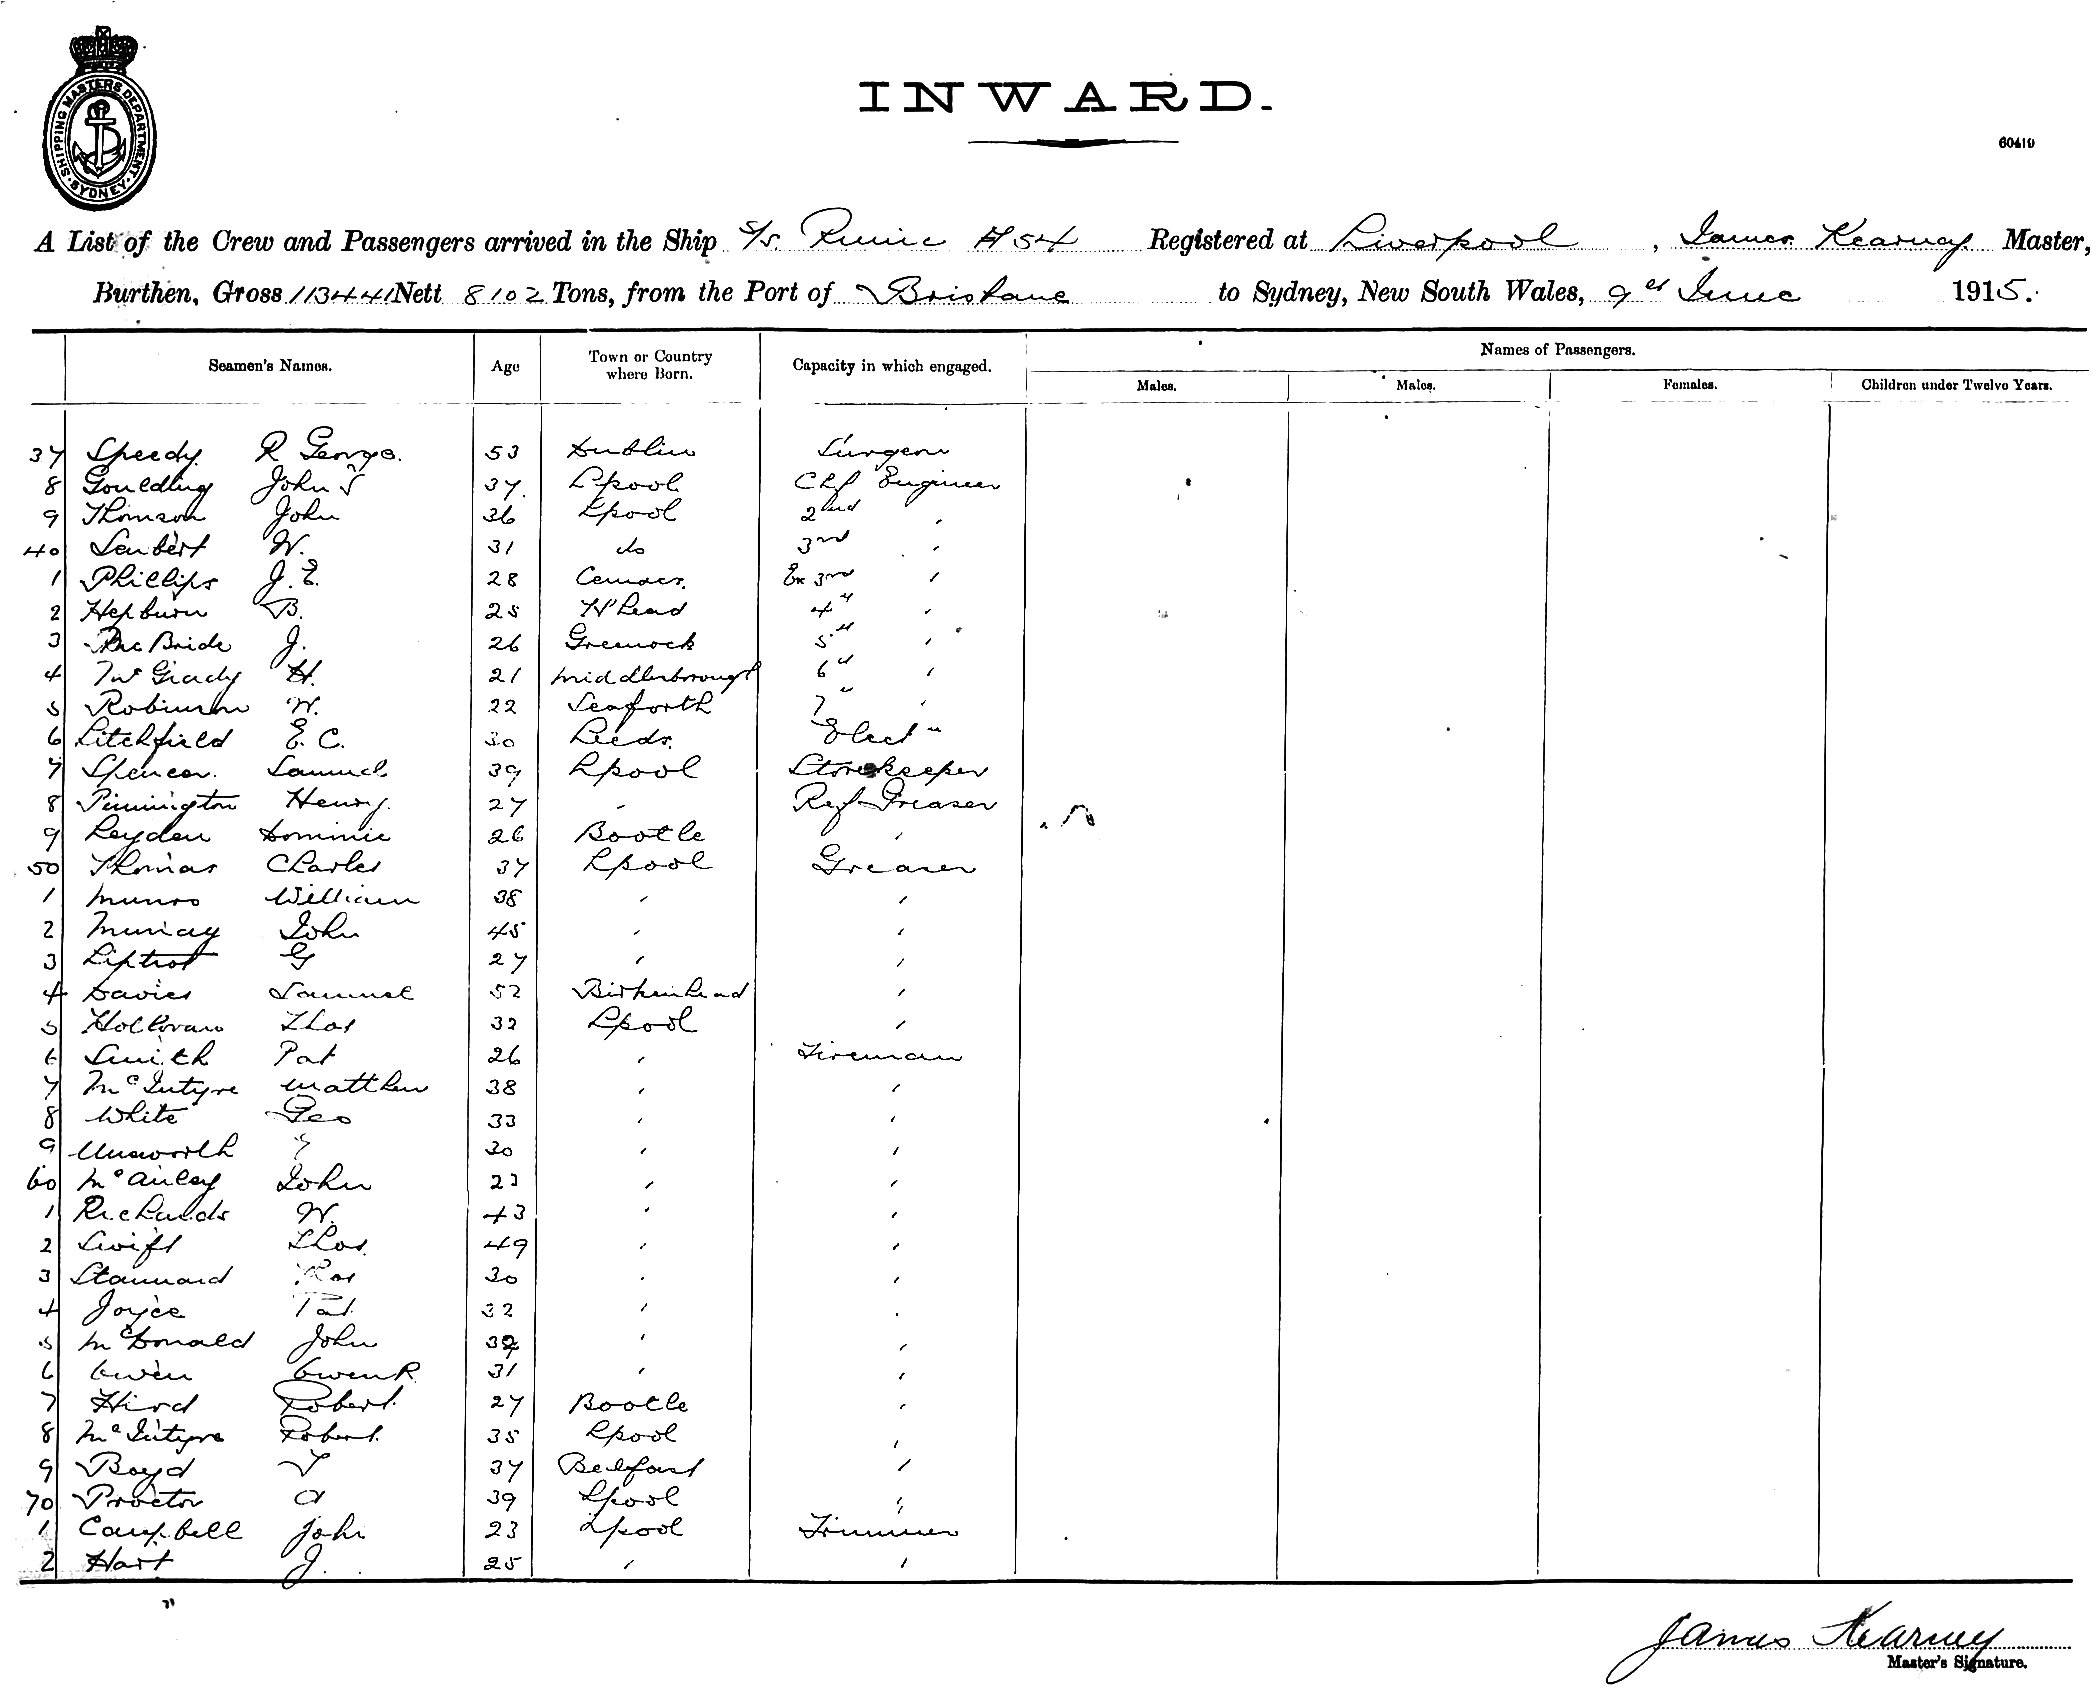 SHIPPING MASTERS DEPARTMENT · SYDNEY ·
INWARD.
60419
A List of the Crew and Passengers arrived in the Ship S/s. Runic A54 Registered at Liverpool, James Kearney Master,
Burthen, Gross 11344 Nett 8102 Tons, from the Port of Brisbane to Sydney, New South Wales, 9th June 1915.
Seamen's Names. Age Town or Country where Born. Capacity in which engaged. Names of Passengers.
Males. Males. Females. Children under Twelve Years.
37 Speedy R George. 53 Dublin Surgeon
8 Gouldling John S 37. Lpool Chf Engineer
9 Thomson John 36 Lpool 2nd "
40 W. 31 do 3rd "
1 Phillips J. E. 28 Cemaes. Ex 3rd "
2 Hepburn B. 25 4th "
3 McBride J. 26 Greenock 5th "
4 McGrady H. 21 Middlesborough 6th "
5 Robinson W. 22 Seaforth 7th "
6 Litchfield E. C. 30 Leeds. Elect n
7 Spencer. Samuel 39 Lpool Storekeeper
8 Pinnington Henry. 27 " Ref Greaser
9 Leyden Dominic 26 Bootle "
50 Thomas Charles 37 Lpool Greaser
1 Munro William 38 " "
2 Murray John 45 " "
3 Liptrot G 27 " "
4 Davies Samuel 52 Birkenhead "
5 Holloran Thos 32 Lpool "
6 Smith Pat 26 " Fireman
7 McIntyre Matthew 38 " "
8 White Geo 33 " "
9 Unsworth 30 " "
60 McAuley John 23 " "
1 Richards W. 43 " "
2 Swift Thos. 49 " "
3 Stannard Thos 30 " "
4 Joyce Pat. 32 " "
5 McDonald John " "
6 Owen Owen R 31 " "
7 Hird Robert. 27 Bootle "
8 McIntyre Robert. 35 Lpool "
9 Boyd T 37 Belfast "
70 Proctor A 39 Lpool "
1 Campbell John 23 Lpool Trimmer
2 Hart J. 25 " "
James Kearney
Master's Signature.